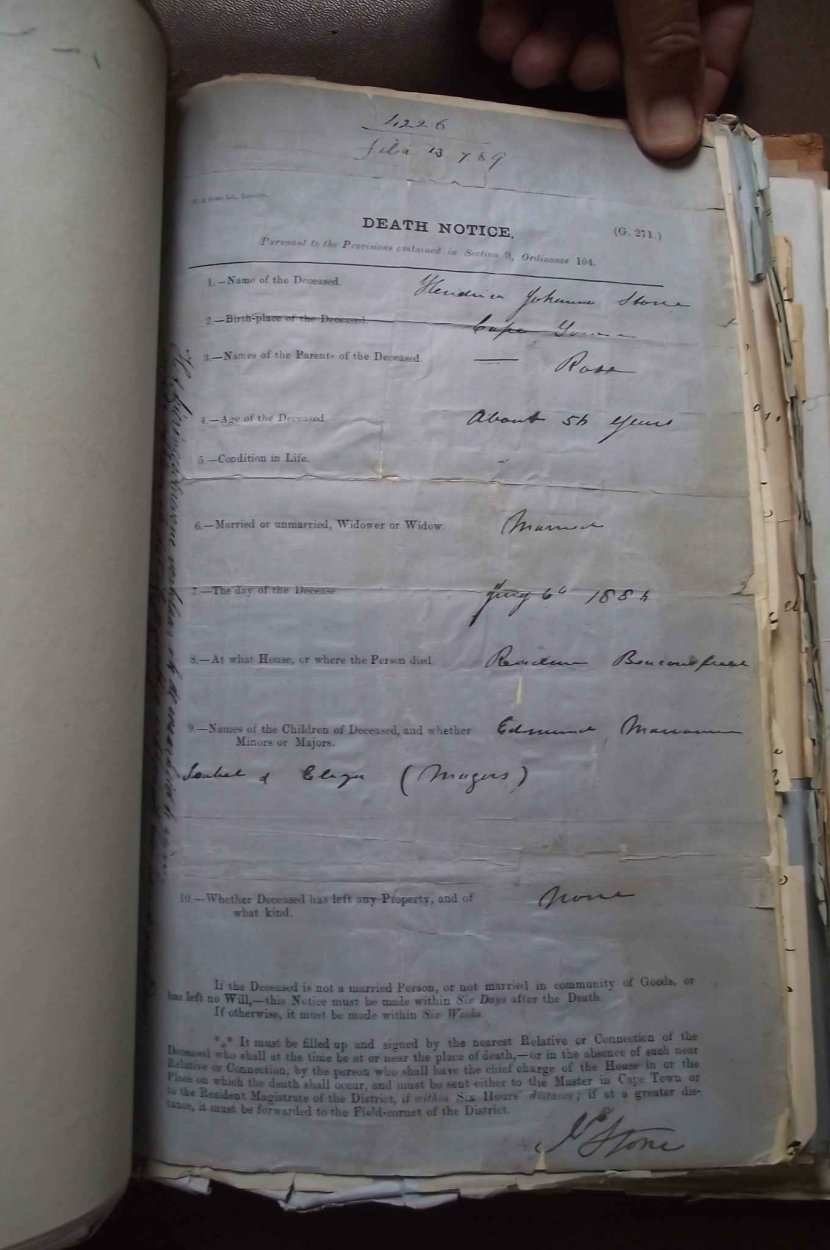 4226
DEATH NOTICE. (G. 271.)
Pursuant to the Provisions contained in Section 9, Ordinance 104.
1.—Name of the Deceased. Johanna Stone
2.—Birth-place of the Deceased Cape Town
3.—Names of the Parents of the Deceased. — Ross
4.—Age of the Deceased. About years
5.—Condition in Life. -
6.—Married or unmarried, Widower or Widow. Married
7.—The day of the Decease.
8.—At what House, or where the Person died. Residence Beaconsfield
9.—Names of the Children of Deceased, and whether Edmund
Minors or Majors.
Isabel & Eliza (Majors)
10.—Whether Deceased has left any Property, and of none
what kind.
If the Deceased is not a married Person, or not married in community of Goods, or
has left no Will,—this Notice must be made within Six Days after the Death.
If otherwise, it must be made within Six Weeks.
*** It must be filled up and signed by the nearest Relative or Connection of the
Deceased who shall at the time be at or near the place of death,—or in the absence of such near
Relative or Connection, by the person who shall have the chief charge of the House in or the
Place on which the death shall occur, and must be sent either to the Master in Cape Town or
to the Resident Magistrate of the District, if within Six Hours' distance; if at a greater dis-
tance, it must be forwarded to the Field-cornet of the District.
Stone